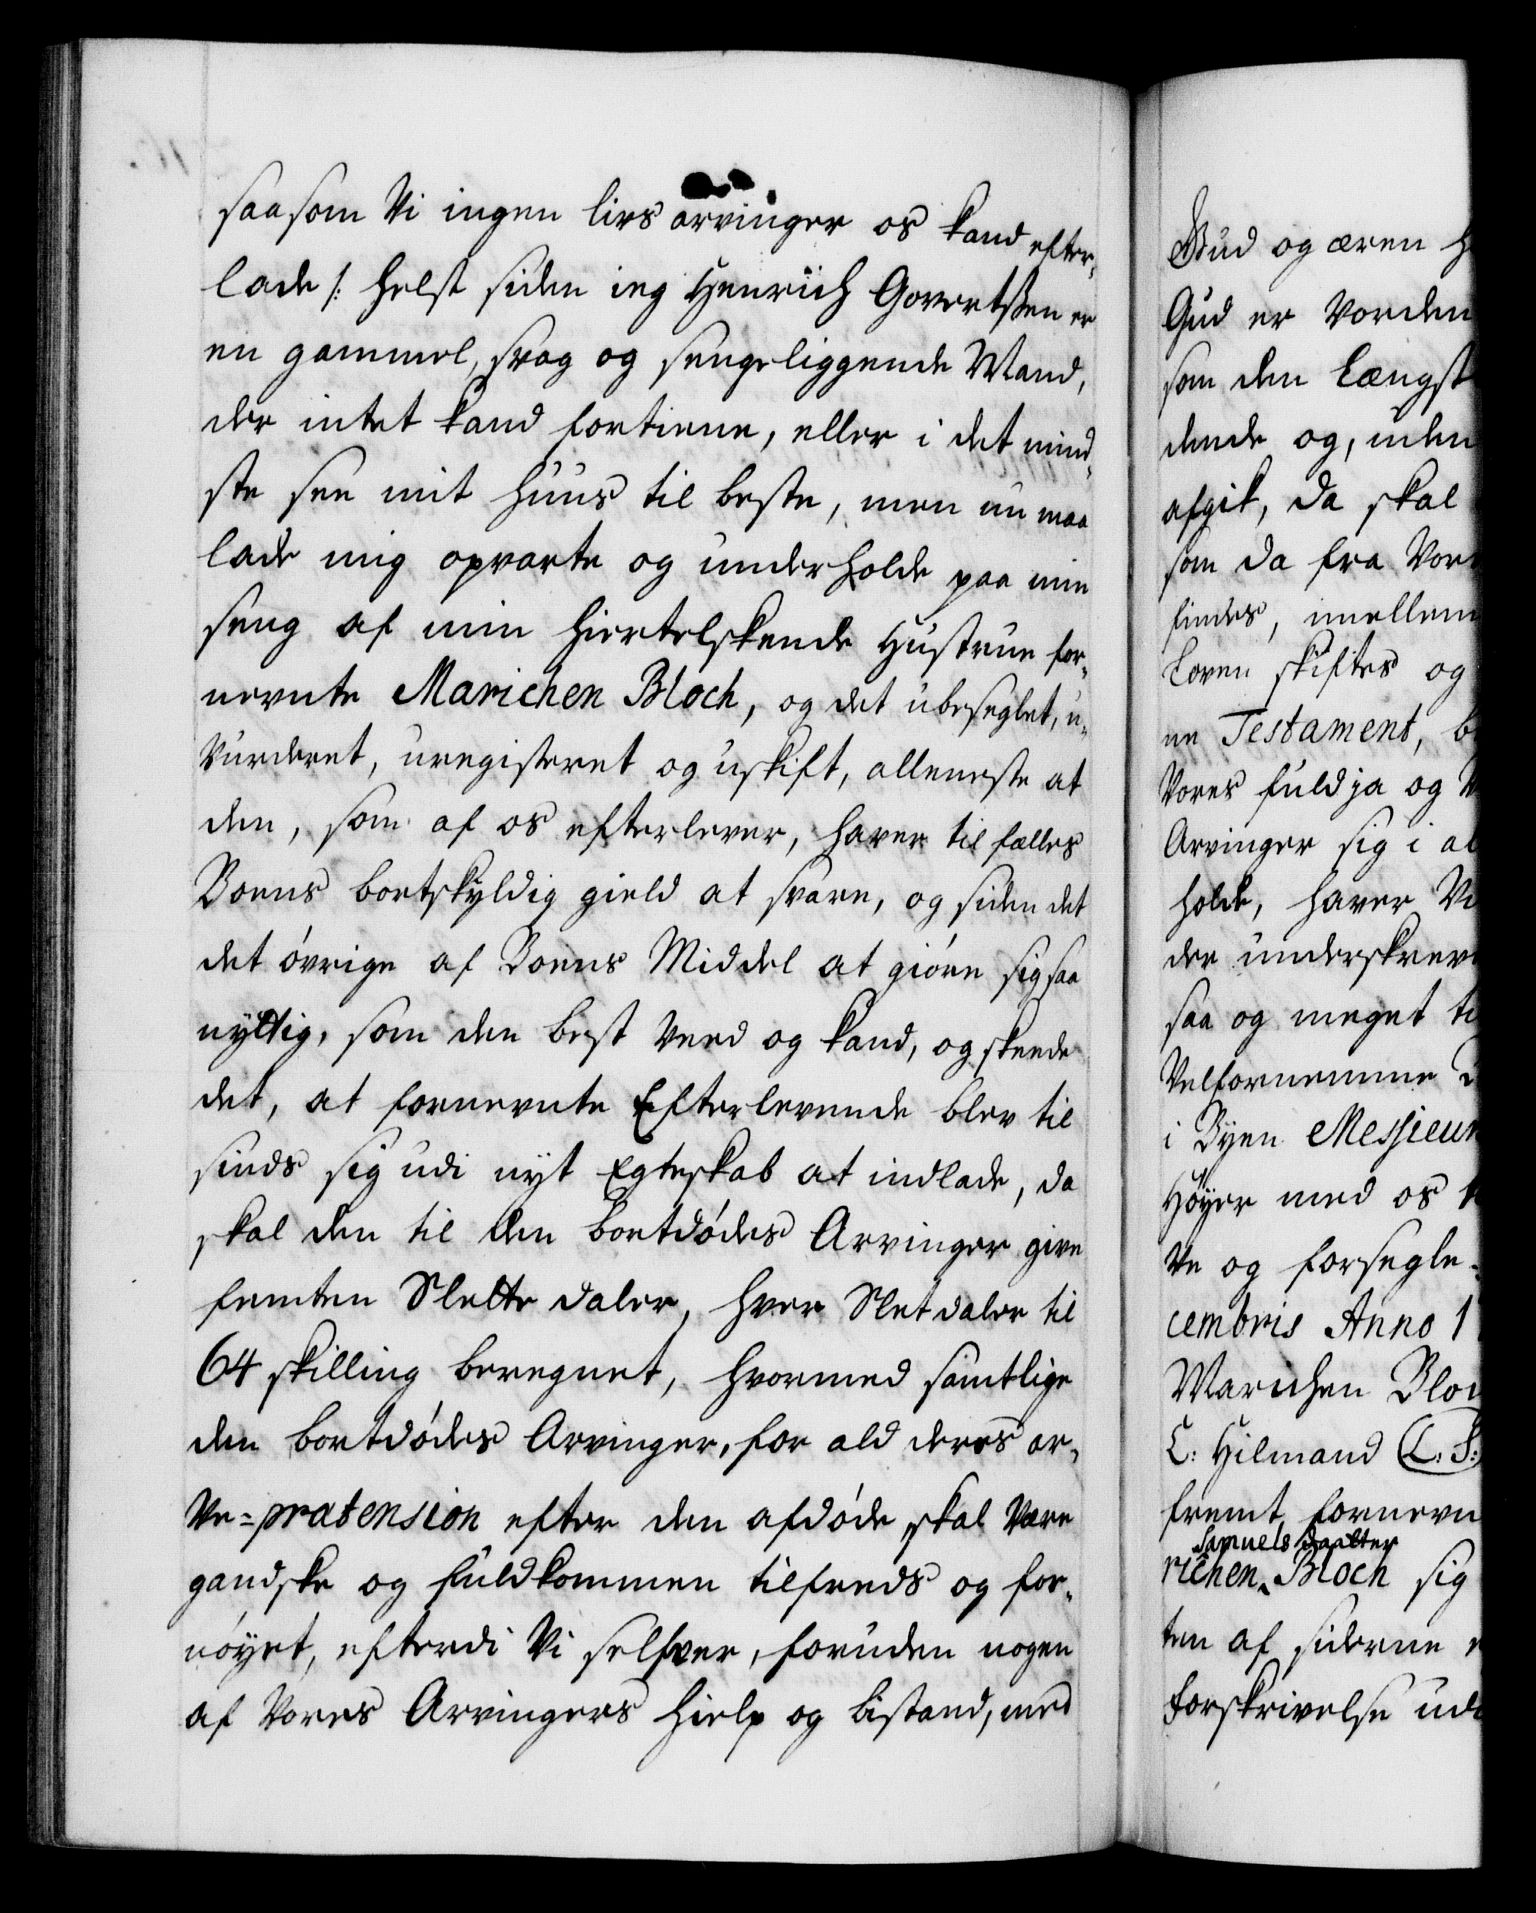 saasom Vi ingen livs arvinger os kand efter-
lade /: helst siden ieg Henrich Govertssen er
en gammel, svag og sengeliggende Mand,
der intet kand fortiene, eller i det mind-
ste see mit huus til beste, men nu maa
lade mig opvarte og underholde paa min
seng af min hiertelskende Hustrue for-
nevnte Marichen Bloch, og det ubeseglet, u-
Vurderet, uregisteret og uskift, alleneste at
den, som af os efterlever, haver til fælles
Boens bortskyldig gield at svare, og siden det
det øvrige af Boens Middel at giøre sig saa
nyttig, som den best Veed og kand, og skeede
det, at fornevnte Efterlevende blev til
sinds sig udi nyt Egteskab at indlade, da
skal den til den bortdødes Arvinger give
femten Slette daler, hver Slet daler til
64 skilling beregnet, hvormed samtlige
den bortdødes Arvinger, for ald deres ar-
Ve=prætension efter den afdøde skal Være
gandske og fuldkommen tilfreds og for-
nøyet, efterdi Vi selfver, foruden nogen
af Vores Arvingers hielp og bistand, med
Gud og æren h
Gud er Vorden
som den Længst
dende og, uden
afgik, da skal
som da fra Vor
findes, imellem
Loven skiftes og
ne Testament, b
Vores fuld ja og V
Arvinger sig i al
holde, haver Vi
der underskrev
saa og meget ti
Velfornemme
i Byen Messieur
Høyer med os
Ve og forsegle-
cembris Anno 1
Marichen Bloc
C: Hilmand (L: S:)
fremt fornevn
Samuels daatter
richen Bloch sig
ten af siderne
Forskrivelse udi